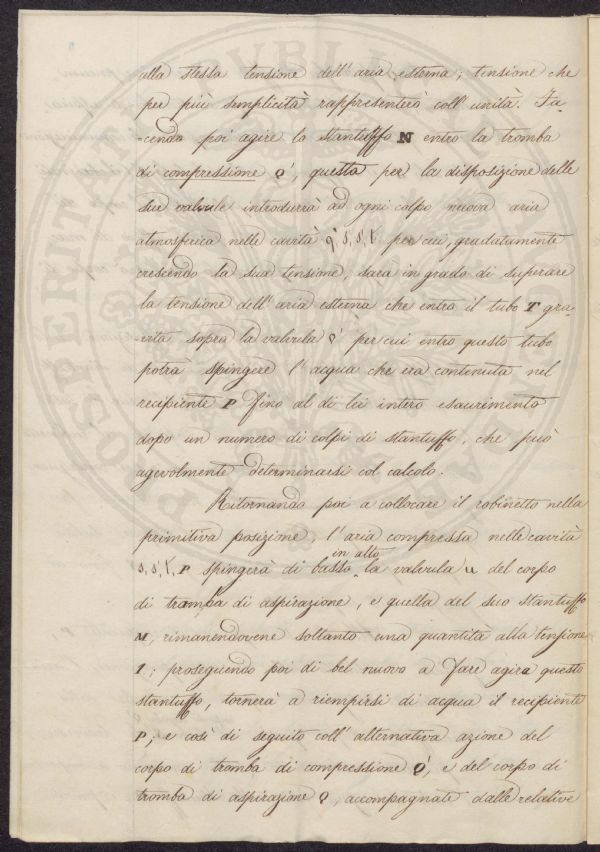 alla stessa tensione dell'aria esterna; tensione che
per più semplicità rappresenterò coll'unità. Fa-
-cendo poi agire lo stantuffo N entro la tromba
di compressione Q', questa per la disposizione delle
sue valvule introdurrà ad ogni colpo nuova aria
atmosferica nelle cavità q', s, s, t per cui, gradatamente
crescendo la sua tensione, sarà in grado di superare
la tensione dell'aria esterna che entro il tubo T gra-
-vita sopra la valvula per cui entro questo tubo
potrà spingere l'acqua che era contenuta nel
recipiente P fino al di lei intero esaurimento
dopo un numero di colpi di stantuffo, che può
agevolmente determinarsi col calcolo.
Ritornando poi a collocare il robinetto nella
primitiva posizione, l'aria compressa nelle cavità
s, s, t, P spingerà di basso in alto la valvula u del corpo
di tromba di aspirazione, e quella del suo stantuffo
M, rimanendovene soltanto una quantità alla tensione
1; proseguendo poi di bel nuovo a fare agire questo
stantuffo, tornerà a riempirsi di acqua il recipiente
P; e così di seguito coll'alternativa azione del
corpo di tromba di compressione Q', e del corpo di
tromba di aspirazione Q, accompagnate dalle relative